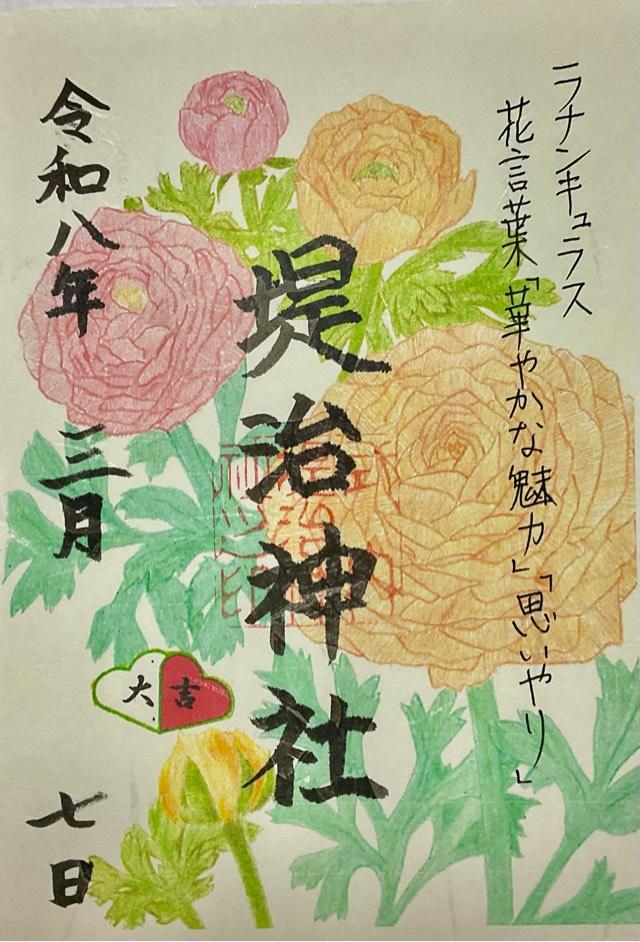 ラナンキュラス
花言葉「華やかな魅力」「思いやり」
堤治神社
大吉
令和八年 三月 七日